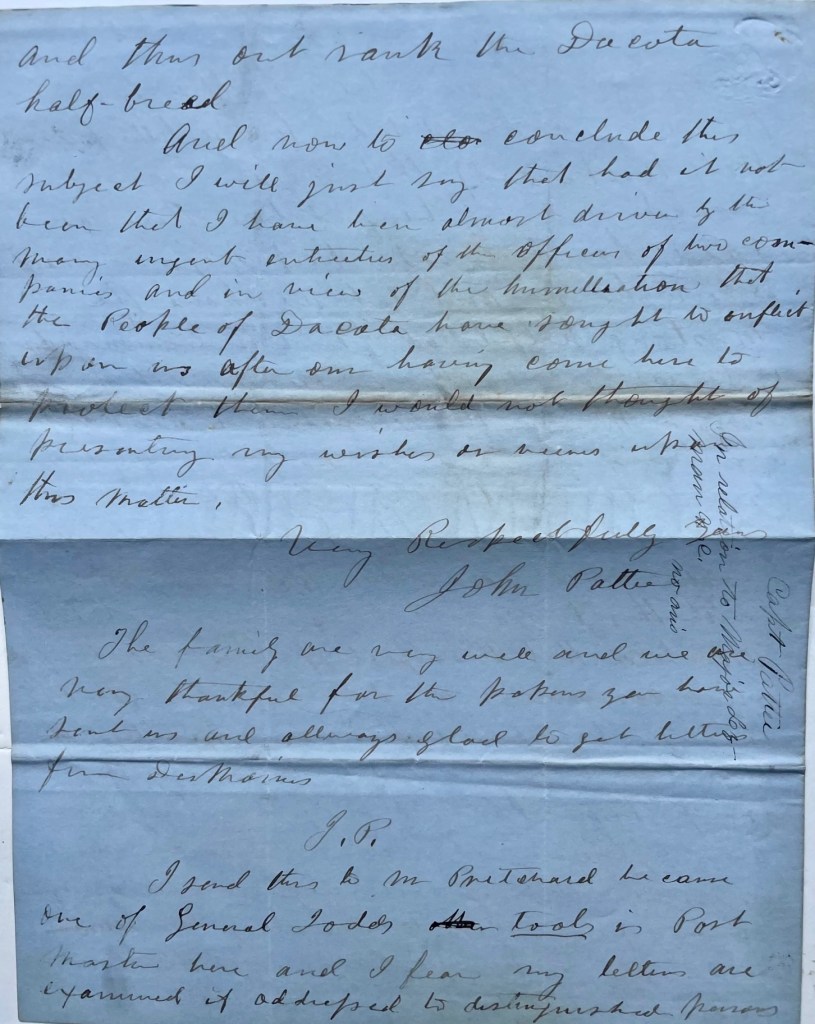 and thus out rank the Dacota
half-breed
And now to clo conclude this
subject I will just say that had it not
been that I have been almost driven by the
many urgent entreties of the officers of two com-
panies and in view of the humiliation that
the People of Dacota have sought to inflict
upon us after our having come here to
protect them I would not thought of
presenting my wishes or views upon
this matter.
Very Respectfully
John Pattee
The family are very well and we are
very thankful for the papers you have
sent us and allways glad to get letters
from DesMoines
J. P.
I send this to Mr Pritchard because
one of General Todds tools is Post
Master here and I fear my letters are
examined if addressed to distinguished persons
Capt Pattee
In relation to Major
no ans